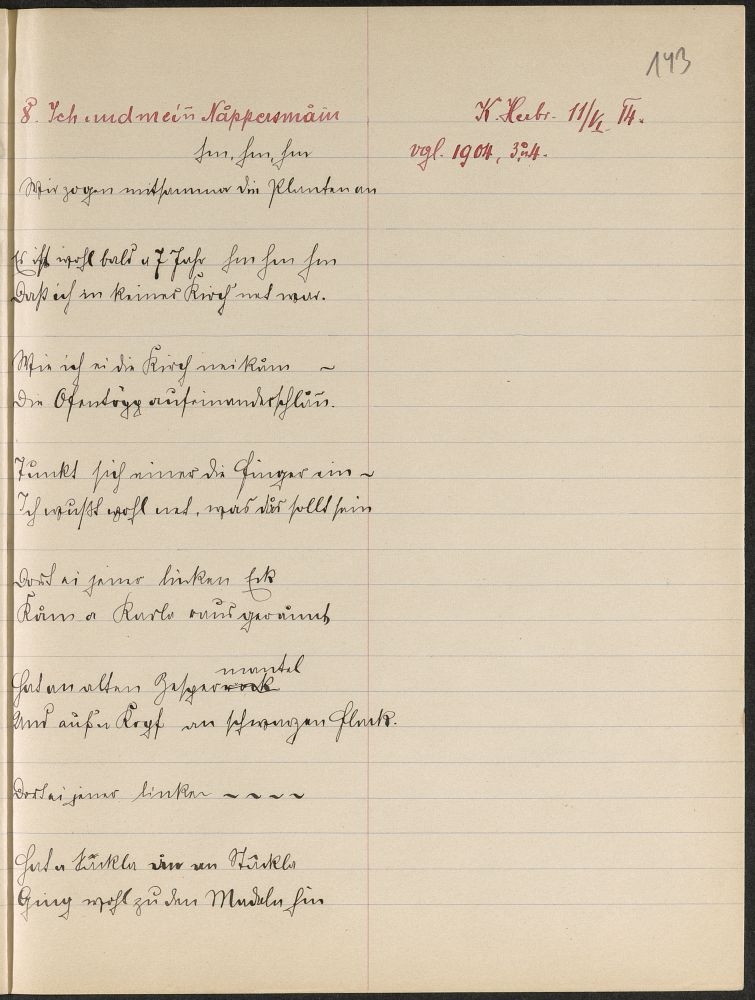 143
8. Ich und mein Nåppersmåin
K. Herbr. 11/VI. 14.
hm, hm, hm
vgl. 1904, 3 u 4.
Wir zogen mitsammer die Planten an
Es ist wohl bald a 7 Jahr hm hm hm
Daß ich in keiner Kirch net war.
Wie ich ei die Kirch neikåm ~
Die Ofentöpp aufeinanderschlån.
Tunkt sich einer die Finger ein ~
Ich wußt wohl net, was dås sollt sein
Dort ei jener linken Eck
Kåm a Karla rausgerånnt
mantel
Hat an alten Zesperrock
Und auf'n Kopf an schwarzen Flack.
Dort ei jener linken ~ ~ ~ ~
Hat a Säckla an Stäckla
Ging wohl zu den Madeln hin